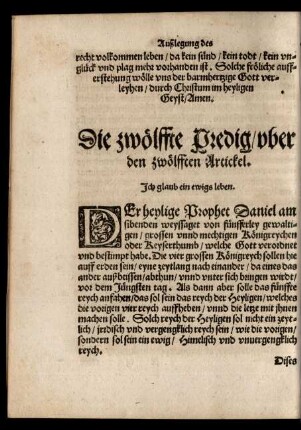 Außlegung des
recht volkommen leben / da kein sünd / kein todt / kein vn-
glück vnd plag mehr vorhanden ist. Solche fröliche auff-
erstehung wölle vns der barmhertzige Gott ver-
leyhen / durch Christum im heyligen
Geyst / Amen.
Die zwölffte Predig / vber
den zwölfften Artickel.
Ich glaub ein ewigs leben.
DEr heylige Prophet Daniel am
sibenden weyssaget von fünfferley gewalti-
gen / grossen vnnd mechtigen Königreychen
oder Keyserthumb / welche Gott verordnet
vnd bestimpt habe. Die vier grossen Königreych sollen hie
auff erden sein / eyne zeytlang nach einander / da eines das
ander außbeyssen / abthun / vnnd vnter sich bringen wirdt /
vor dem Jüngsten tag. Als dann aber solle das fünffte
reych anfahen / das sol sein das reych der Heyligen / welches
die vorigen vier reych auffheben / vnnd die letze mit jhnen
machen solle. Solch reych der Heyligen sol nicht ein zeyt-
lich / jrdisch vnd vergengklich reych sein / wie die vorigen /
sondern sol sein ein ewig / Himelisch vnd vnuergengklich
reych.
Dises